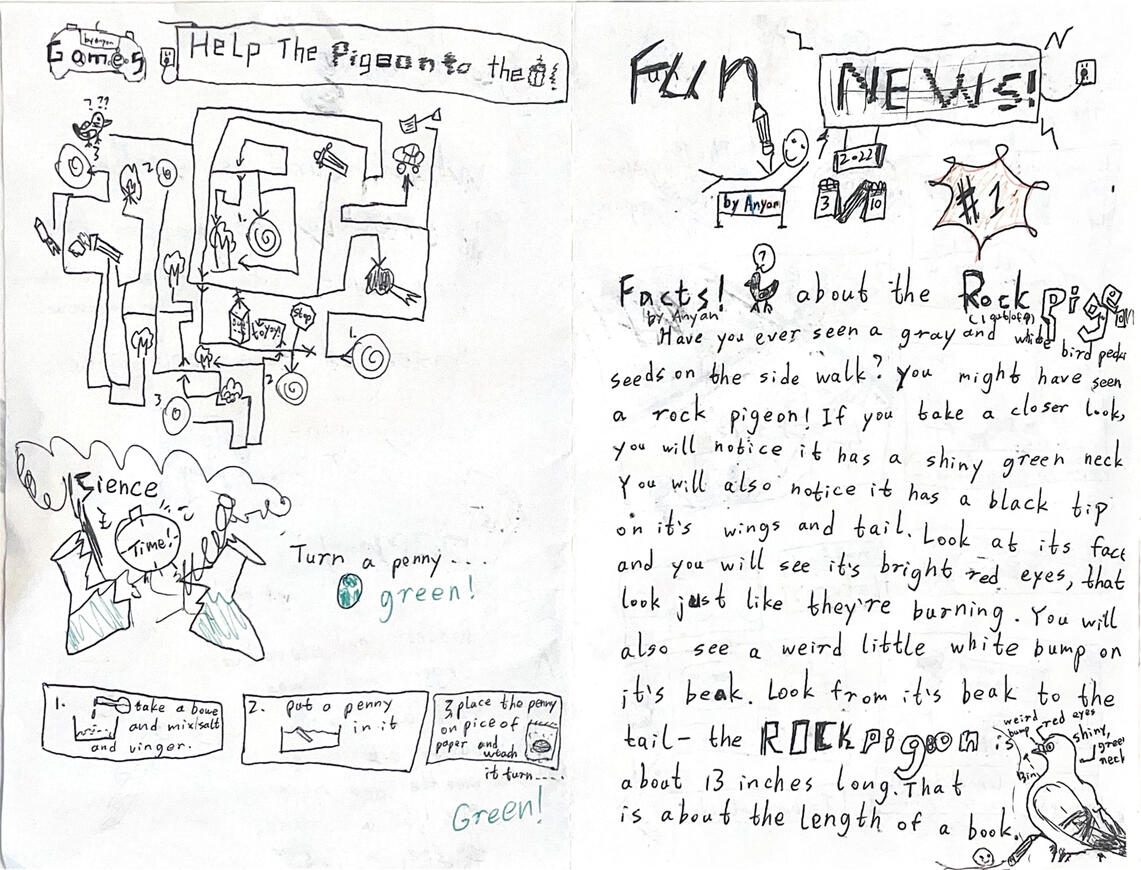 by Anyan
Games
HELP The Pigeon to the
? ??
2
1.
3
Stop
Yoyoy!
1.
2
3
Sience
Time!
Turn a penny....
green!
1.
take a bowe
and mix salt
and vinger.
2. put a penny
in it
3. place the penny
on pice of
paper and
wach
it turn....
Green!
Fun NEWS!
2022
3 10
by Anyan
#1
?
Facts! about the Rock Pigeon
by Anyan
Have you ever seen a gray and white bird peck
seeds on the side walk? You might have seen
a rock pigeon! If you take a closer look,
you will notice it has a shiny green neck
You will also notice it has a black tip
on it's wings and tail. Look at its face
and you will see it's bright red eyes, that
look just like they're burning. You will
also see a weird little white bump on
it's beak. Look from it's beak to the
tail- the ROCK pigeon is
about 13 inches long. That
is about the length of a book.
weird
bump
red eyes
shiny,
green
neck
13in